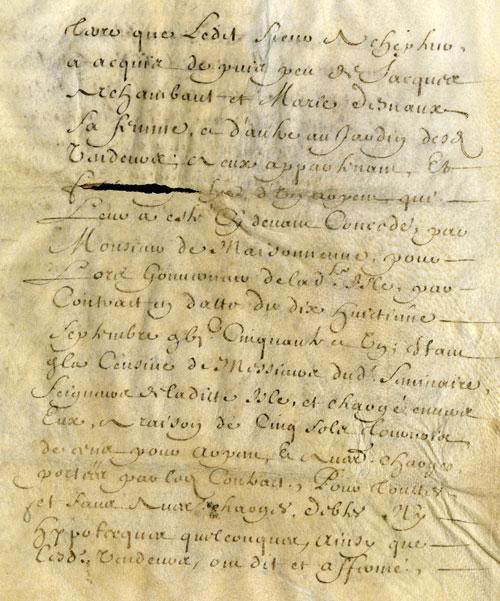 que Ledit Sieur
a acquis de puis peu de Jacques
Archambaut et Marie
Sa femme, et d'autre au Jardin desd
Vendeurs, et eux appartenant, Et
d'un arpent qui
Leur a esté Cy devant Concedé, par
Monsieur de Maisonneufve, pour
Lors Gouverneur de lad. Isle, par
Contract en datte du dix huictiesme
Septembre gbic Cinquante et Un; Estant
En la Censive de Messieurs dud. Seminaire
Seigneurs de ladite Isle, et chargé envers
Eux, a raison de Cinq Sols tournois
de cens pour arpent, et autres charges
portées par led Contract, Pour Touttes
et Sans autres charges, debtes, Ny
hypotecques quelconques, ainsy que
Lesd. Vendeurs, ont dit et affirmé,